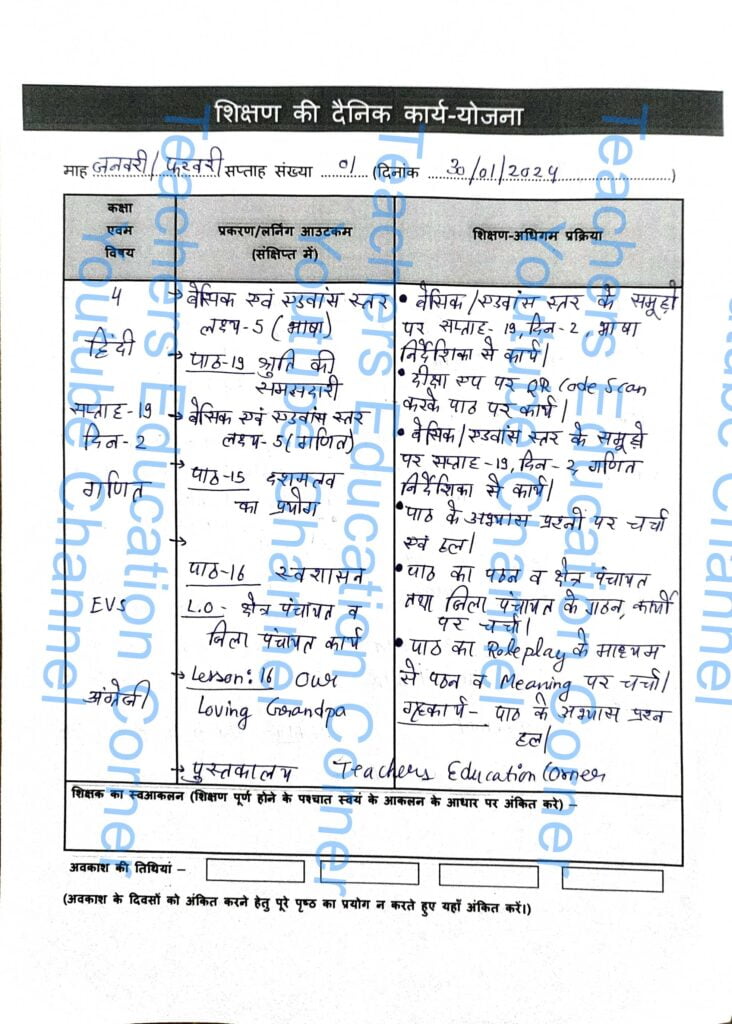 शिक्षण की दैनिक कार्य-योजना
माह जनवरी/फरवरी सप्ताह संख्या 01 (दिनांक 30/01/2024)
कक्षा एवम विषय
प्रकरण/लर्निंग आउटकम (संक्षिप्त में)
शिक्षण-अधिगम प्रक्रिया
4
हिंदी
सप्ताह-19
दिन-2
गणित
EVS
अंग्रेजी
→ बेसिक एवं एडवांस स्तर
लक्ष्य-5 (भाषा)
→ पाठ-19 श्रुति की
समझदारी
→ बेसिक एवं एडवांस स्तर
लक्ष्य-5 (गणित)
→ पाठ-15 दशमलव
का प्रयोग
→
पाठ-16 स्वशासन
L.O- क्षेत्र पंचायत व
जिला पंचायत कार्य
→ Lesson: 16 Our
Loving Grandpa
→ पुस्तकालय Teachers Education Corner
• बेसिक/एडवांस स्तर के समूहों
पर सप्ताह-19, दिन-2, भाषा
निर्देशिका से कार्य।
• दीक्षा एप पर QR Code Scan
करके पाठ पर कार्य।
• बेसिक/एडवांस स्तर के समूहों
पर सप्ताह-19, दिन-2 गणित
निर्देशिका से कार्य।
• पाठ के अभ्यास प्रश्नों पर चर्चा
एवं हल।
• पाठ का पठन व क्षेत्र पंचायत
तथा जिला पंचायत के गठन, कार्यों
पर चर्चा।
• पाठ का Roleplay के माध्यम
से पठन व Meaning पर चर्चा।
गृहकार्य- पाठ के अभ्यास प्रश्न
हल।
शिक्षक का स्वआकलन (शिक्षण पूर्ण होने के पश्चात स्वयं के आकलन के आधार पर अंकित करे) –
अवकाश की तिथियां –
(अवकाश के दिवसों को अंकित करने हेतु पूरे पृष्ठ का प्रयोग न करते हुए यहाँ अंकित करें।)
Teachers Education Corner
Youtube Channel
Teachers Education Corner
Youtube Channel
Teachers Education Corner
Youtube Channel